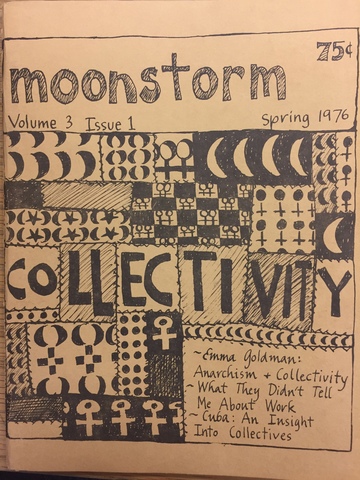 75¢
moonstorm
Volume 3 Issue 1 Spring 1976
COLLECTIVITY
~Emma Goldman:
Anarchism + Collectivity
~What They Didn't Tell
Me About Work
~Cuba: An Insight
Into Collectives